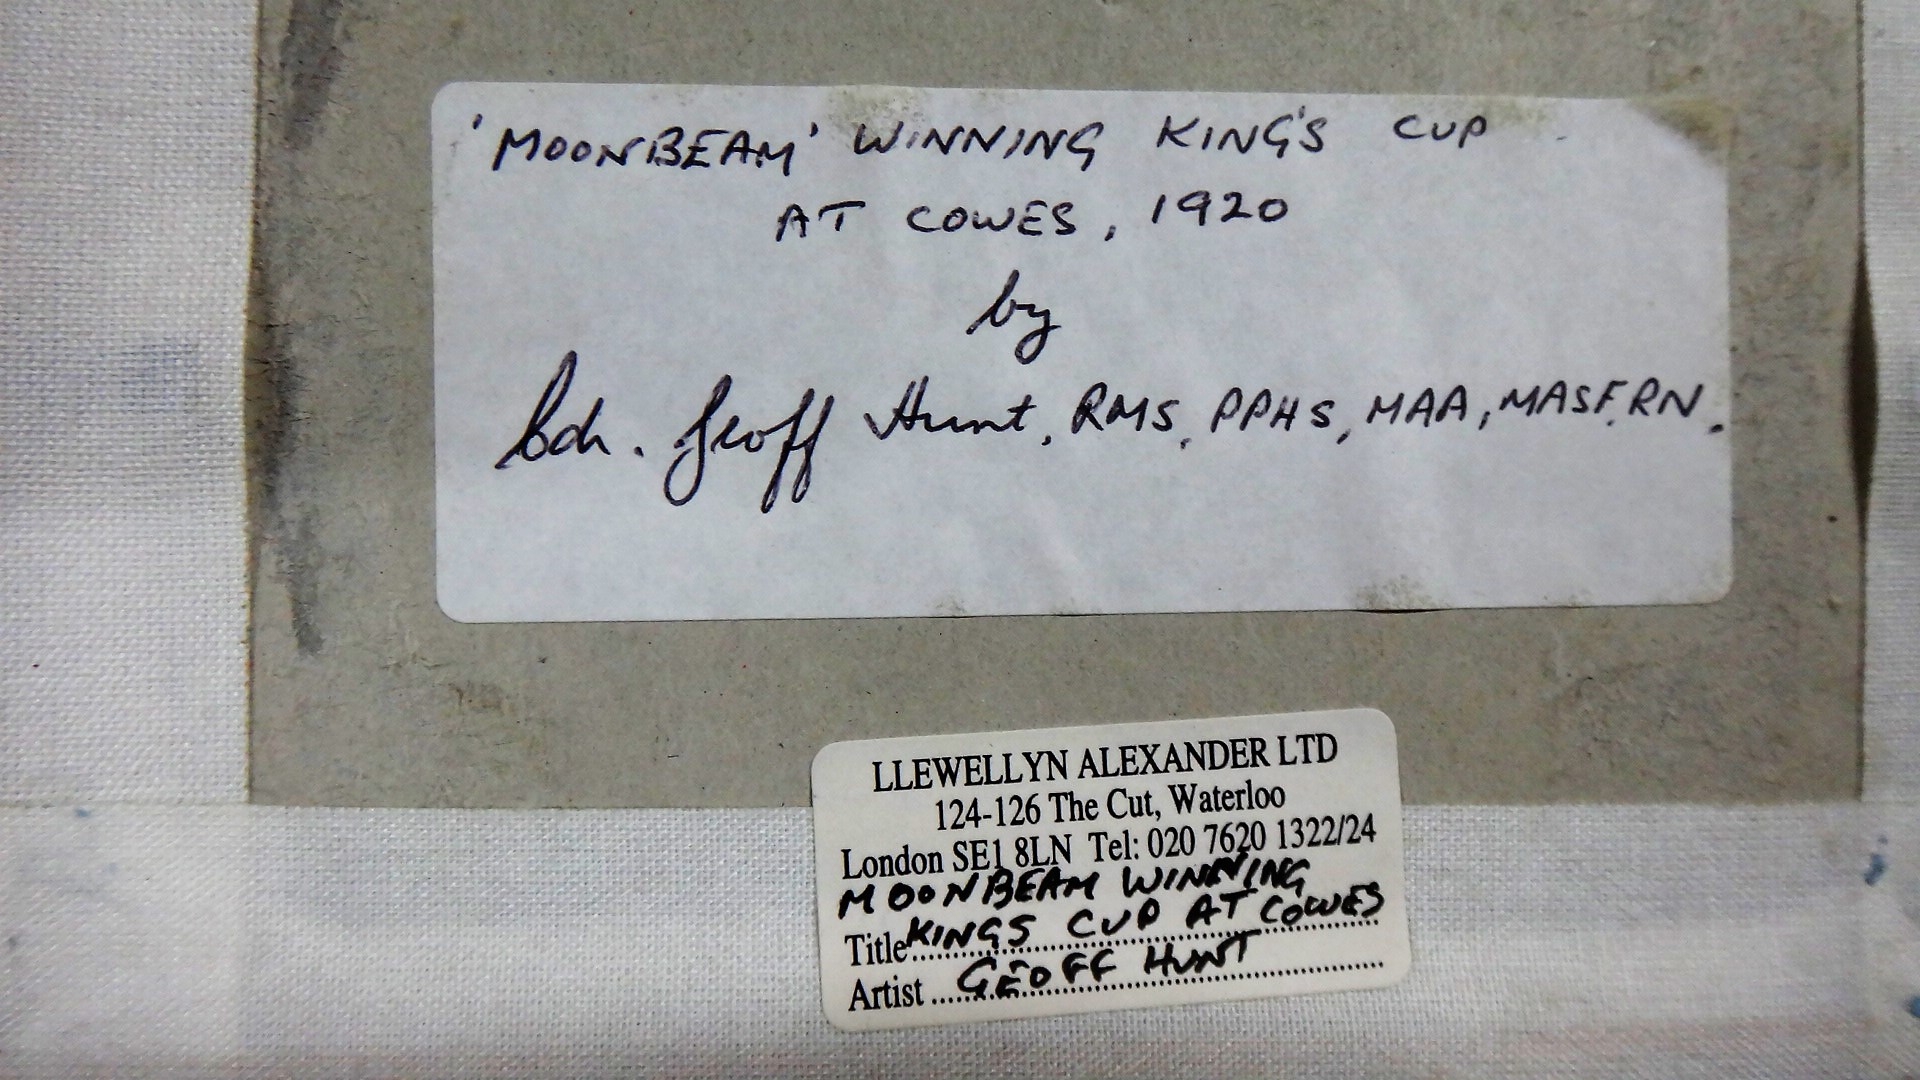 'MOONBEAM' WINNING KING'S CUP
AT COWES, 1920
by
Cdr. Geoff Hunt, RMS, PPHS, MAA, MASF, RN.
LLEWELLYN ALEXANDER LTD
124-126 The Cut, Waterloo
London SE1 8LN Tel: 020 7620 1322/24
MOONBEAM WINNING
Title KINGS CUP AT COWES
Artist GEOFF HUNT